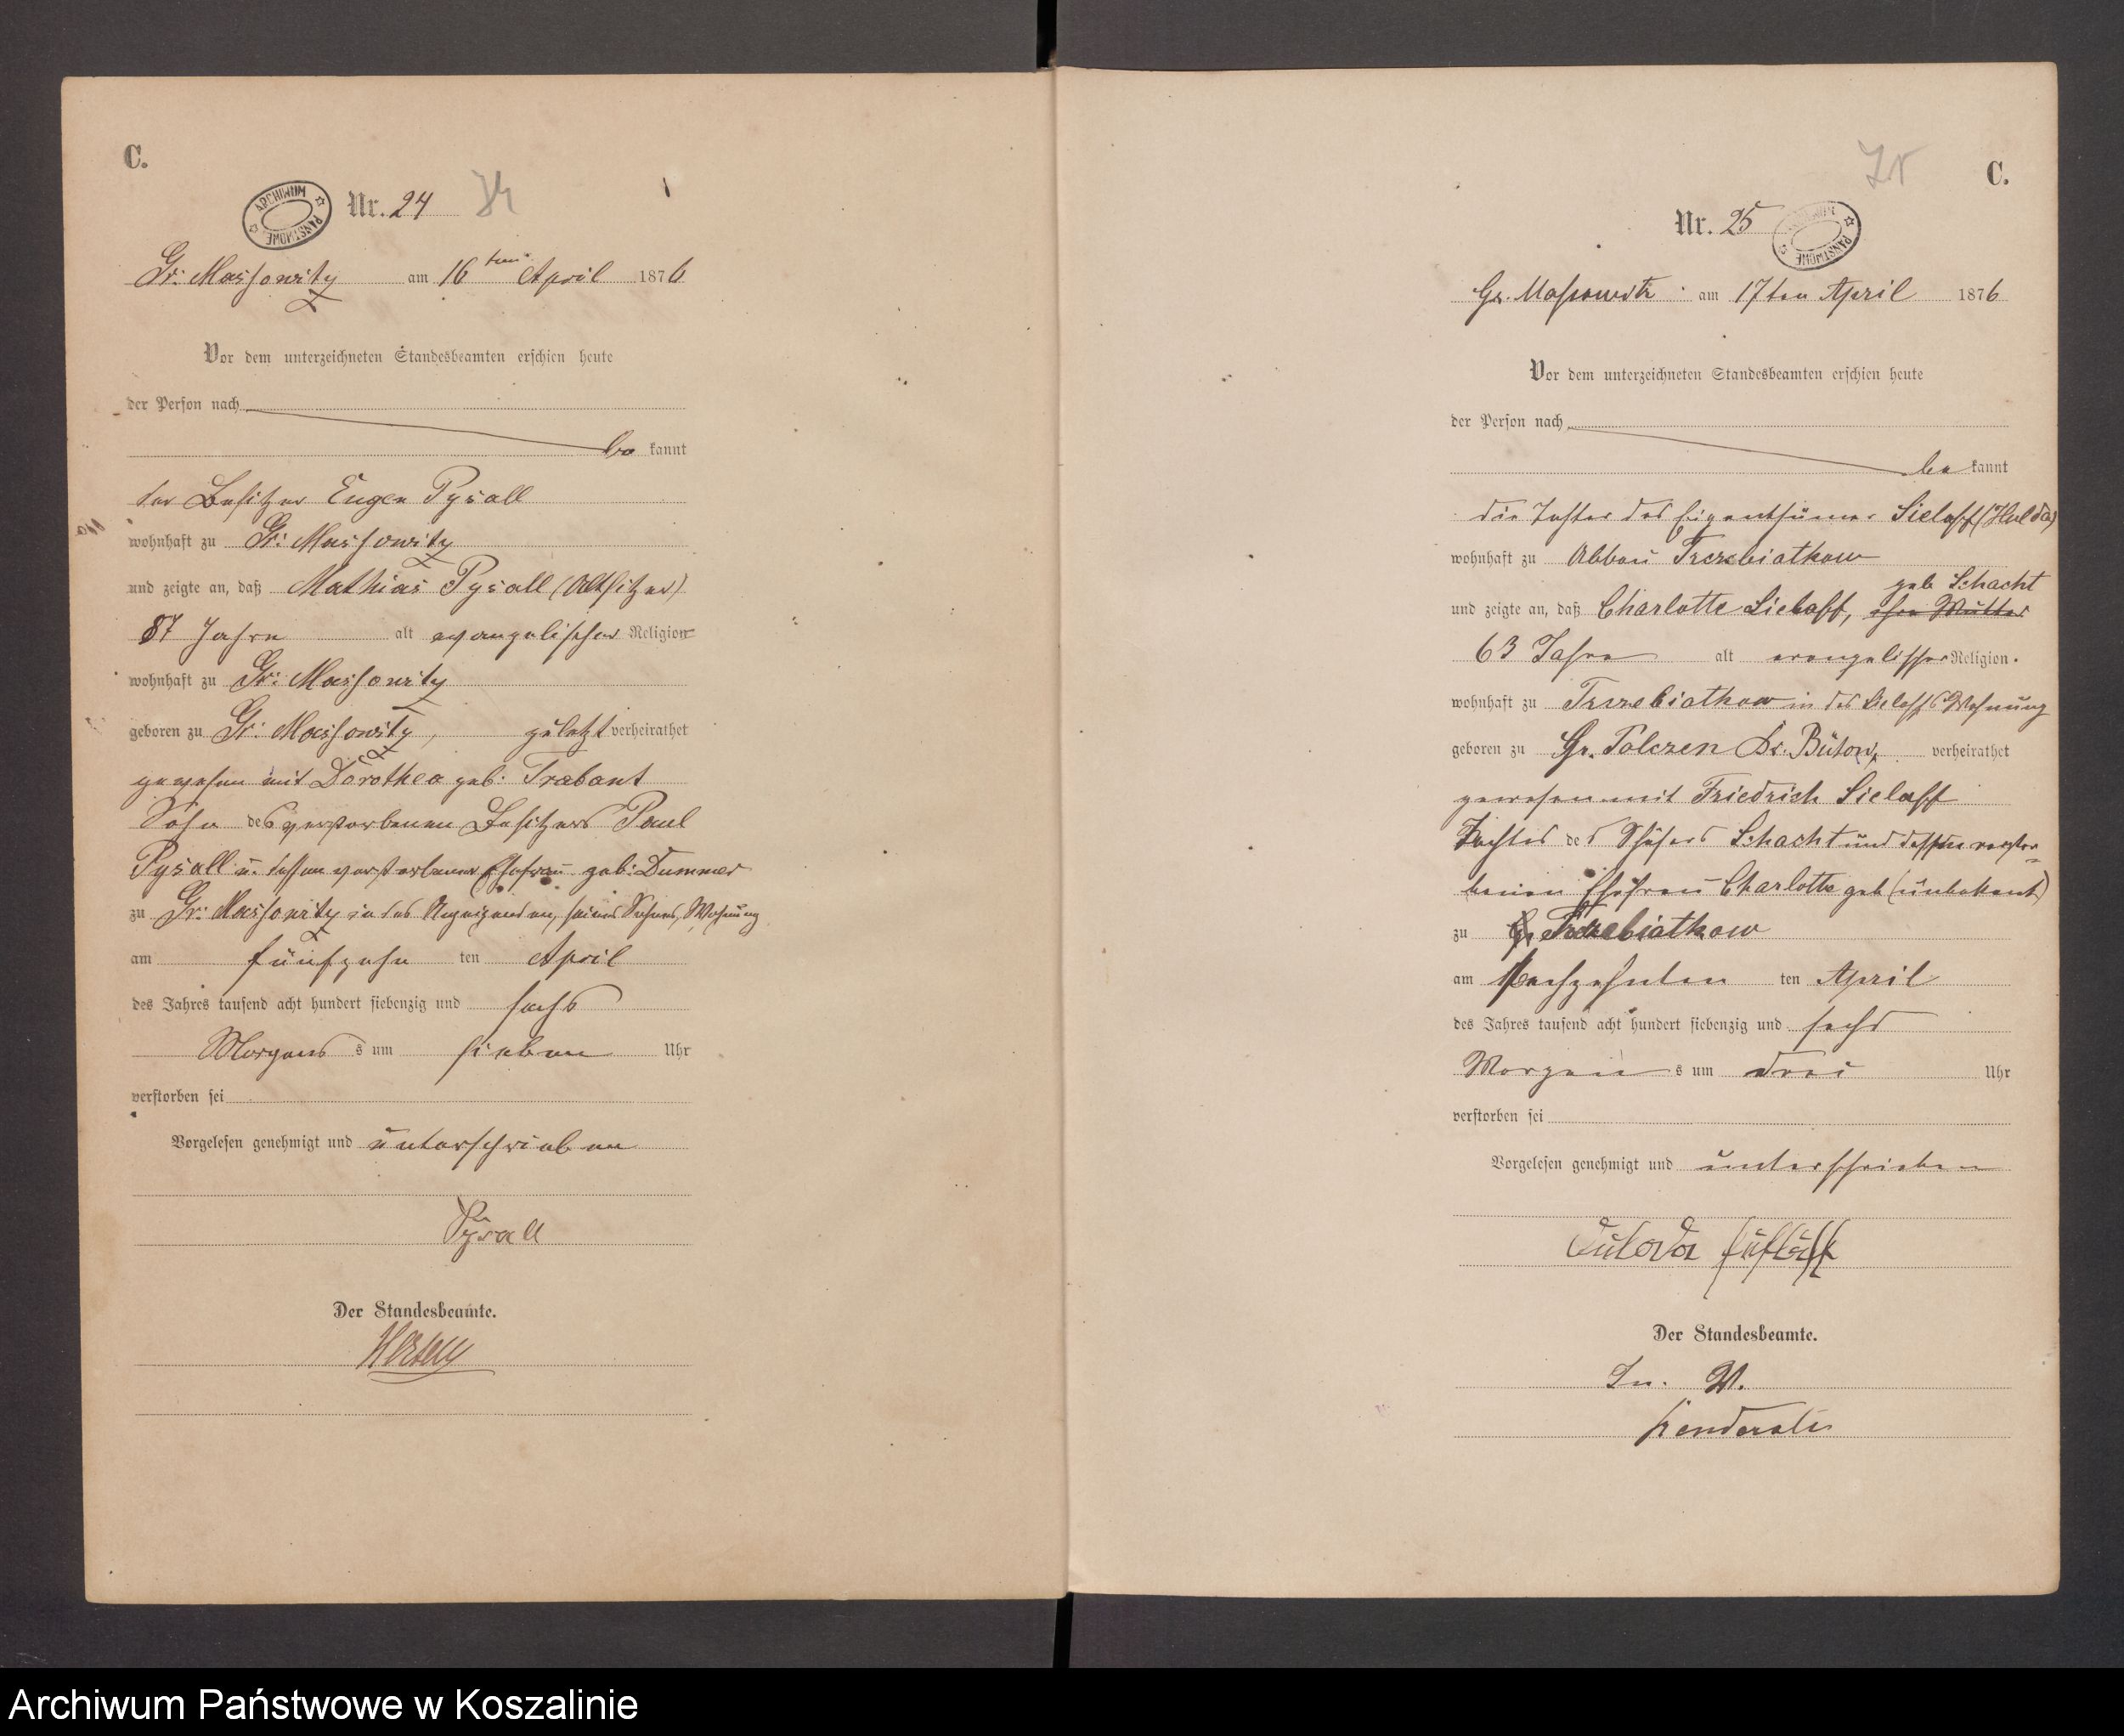 C.
ARCHIWUM PAŃSTWOWE
Nr. 24
Gr: Massowitz am 16ten April 1876
Vor dem unterzeichneten Standesbeamten erschien heute
der Person nach
be kannt
der Besitzer Eugen Pysall
wohnhaft zu Gr: Massowitz
und zeigte an, daß Mathias Pysall (Altsitzer)
87 Jahre alt evangelischer Religion
wohnhaft zu Gr: Massowitz
geboren zu Gr: Massowitz, zuletzt verheirathet
gewesen mit Dorothea geb: Trabant
Sohn des verstorbenen Besitzers Paul
Pysall u. dessen verstorbener Ehefrau geb: Dummer
zu Gr: Massowitz in des Anzeigenden, seines Sohnes, Wohnung
am fünfzehn ten April
des Jahres tausend acht hundert siebenzig und sechs
Morgens s um sieben Uhr
verstorben sei
Vorgelesen genehmigt und unterschrieben
Pysall
Der Standesbeamte.
C.
Nr. 25
ARCHIWUM PAŃSTWOWE
Gr. Massowitz am 17ten April 1876
Vor dem unterzeichneten Standesbeamten erschien heute
der Person nach
be kannt
die Tochter des Eigenthümer Sielaff (Hulda)
wohnhaft zu Abbau Trzebiatkow
geb Schacht
und zeigte an, daß Charlotte Sielaff, ihre Mutter
63 Jahre alt evangelischer Religion.
wohnhaft zu Trzebiatkow in des Sielaffs Wohnung
geboren zu Gr. Tolczen Kr. Bütow, verheirathet
gewesen mit Friedrich Sielaff
Tochter des Schäfers Schacht und dessen verstor-
benen Ehefrau Charlotte geb (unbekant)
zu Trzebiatkow
am sechzehnten ten April
des Jahres tausend acht hundert siebenzig und sechs
Morgen s um drei Uhr
verstorben sei
Vorgelesen genehmigt und unterschrieben
Der Standesbeamte.
In. V.
Archiwum Państwowe w Koszalinie